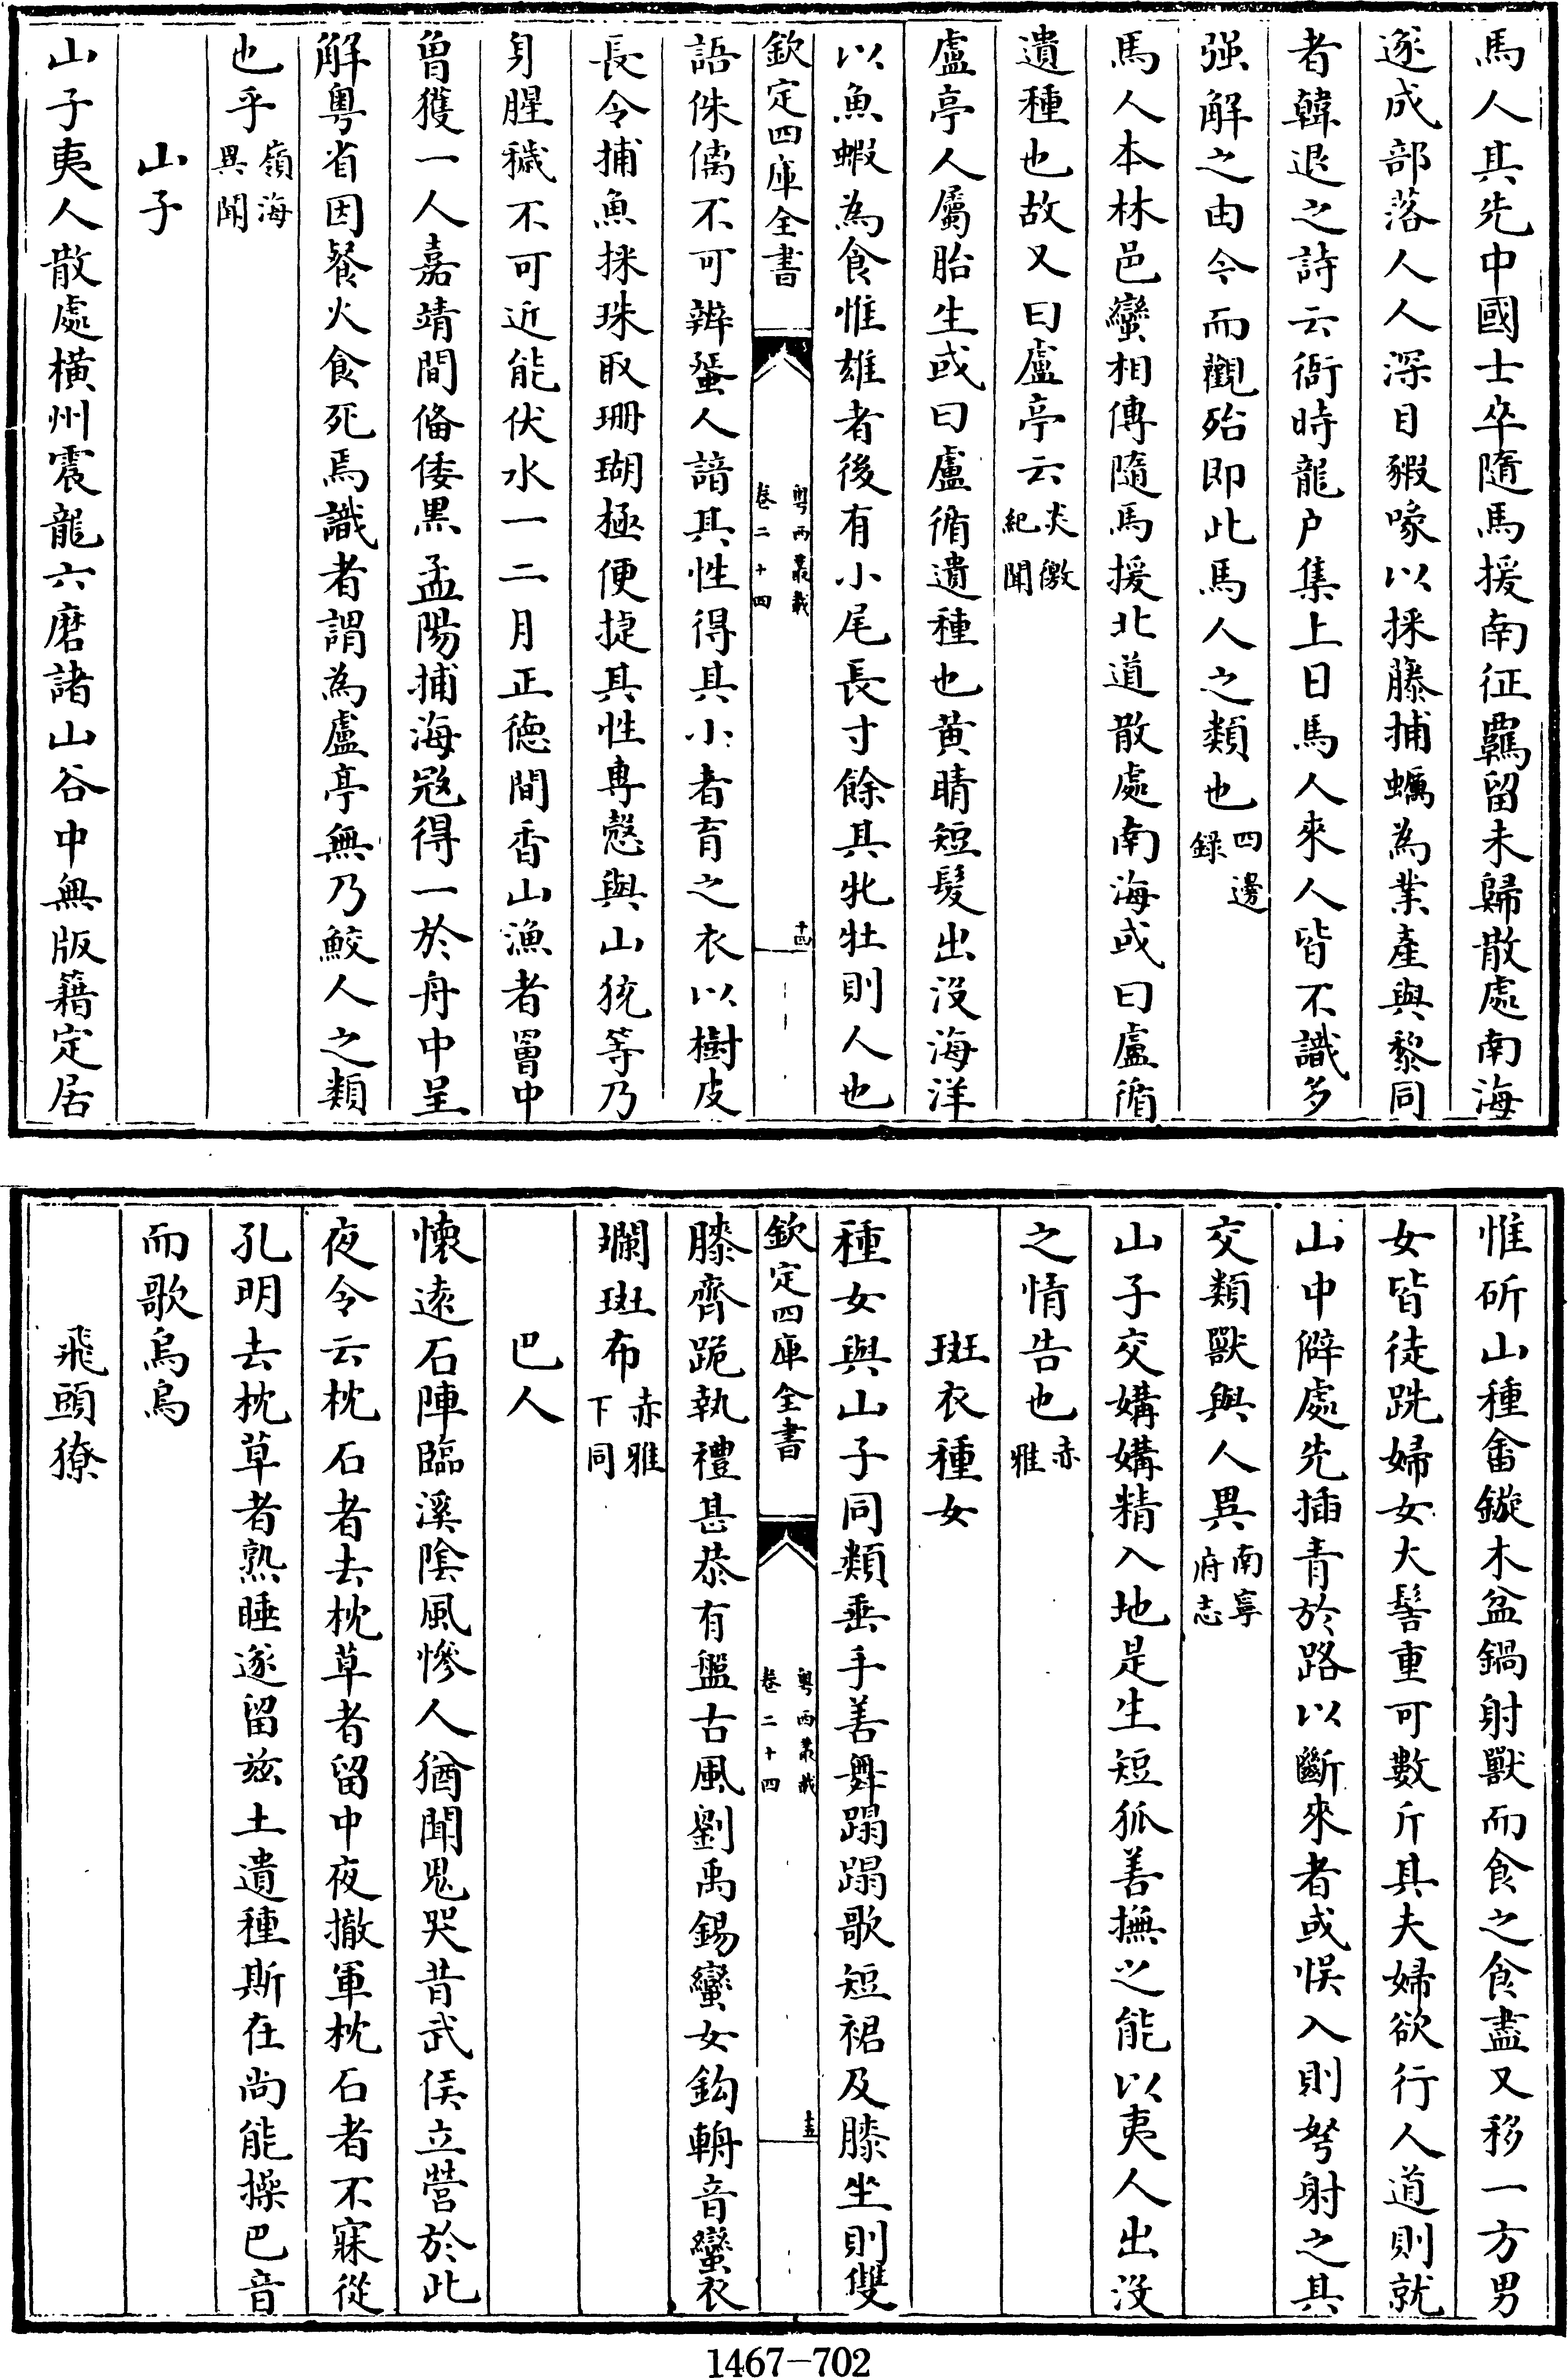 馬人其先中國士卒隨馬援南征羈留未歸散處南海
遂成部落人人深目猳喙以採藤捕蠣為業產與黎同
者韓退之詩云衙時龍户集上日馬人來人皆不識多
强解之由今而觀殆即此馬人之類也四邊錄
馬人本林邑蠻相傳隨馬援北道散處南海或曰盧循
遺種也故又曰盧亭云炎徼紀聞
盧亭人屬胎生或曰盧循遺種也黄睛短髮出没海洋
以魚蝦為食惟雄者後有小尾長寸餘其牝牡則人也
欽定四庫全書
粤西叢載
卷二十四
十四
語侏僪不可辨蜑人諳其性得其小者育之衣以樹皮
長令捕魚採珠取珊瑚極便捷其性専慤與山㹶等乃
身腥穢不可近能伏水一二月正徳間香山漁者罾中
曾獲一人嘉靖間偹倭黒孟陽捕海冦得一於舟中呈
解粤省因餐火食死焉識者謂為盧亭無乃鮫人之類
也乎嶺海異聞
山子
山子夷人散處橫州震龍六磨諸山谷中無版籍定居
惟斫山種畬鏇木盆鍋射獸而食之食盡又移一方男
女皆徒跣婦女大髻重可數斤其夫婦欲行人道則就
山中僻處先插青於路以斷來者或悮入則弩射之其
交類獸與人異南寧府志
山子交媾媾精入地是生短狐善撫之能以夷人出没
之情告也赤雅
斑衣種女
種女與山子同類垂手善舞蹋蹋歌短裙及膝坐則雙
欽定四庫全書
粤西叢載
卷二十四
十五
膝齊跪執禮甚恭有盤古風劉禹錫蠻女鈎輈音蠻衣
斕斑布赤雅下同
巴人
懷遠石陣臨溪陰風慘人猶聞鬼哭昔武侯立營於此
夜令云枕石者去枕草者留中夜撤軍枕石者不寐從
孔明去枕草者熟睡遂留兹土遺種斯在尚能操巴音
而歌烏烏
飛頭獠
1467-702